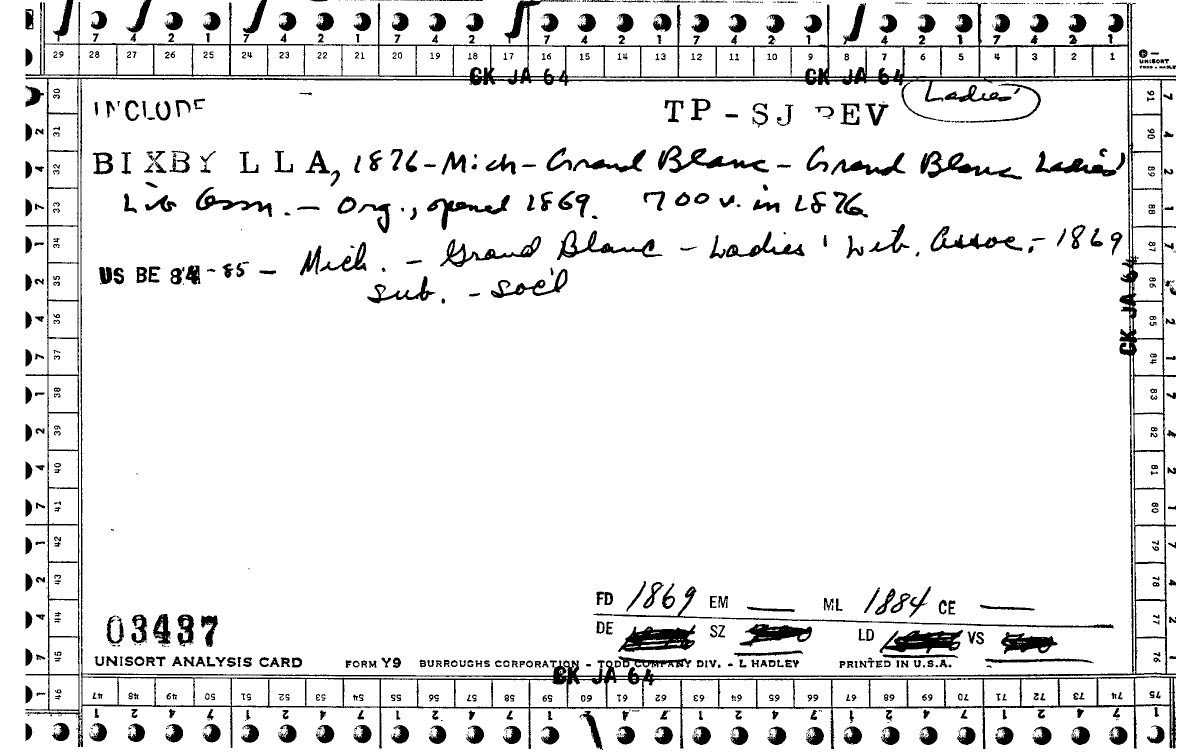 7 4 2 1 7 4 2 1 7 4 2 1 7 4 2 1 7 4 2 1 7 4 2 1
29 28 27 26 25 24 23 22 21 20 19 18 17 16 15 14 13 12 11 10 9 8 7 6 5 4 3 2 1
UNISORT
TODD - HADLEY
CK JA 64 CK JA 64
INCLUDE TP - SJ REV Ladies'
BIXBY L L A, 1876 - Mich - Grand Blanc - Grand Blanc Ladies'
Lib Assn. - Org., opened 1869. 700 v. in 1876
US BE 84-85 - Mich. - Grand Blanc - Ladies' Lib. Assoc. - 1869
sub. - soc'l
30 31 32 33 34 35 36 37 38 39 40 41 42 43 44 45 46
91 90 89 88 87 86 85 84 83 82 81 80 79 78 77 76 75
CK JA 64
FD 1869 EM — ML 1884 CE —
DE SZ LD VS
03437
UNISORT ANALYSIS CARD FORM Y9 BURROUGHS CORPORATION - TODD COMPANY DIV. - L HADLEY PRINTED IN U.S.A.
CK JA 64
47 48 49 50 51 52 53 54 55 56 57 58 59 60 61 62 63 64 65 66 67 68 69 70 71 72 73 74